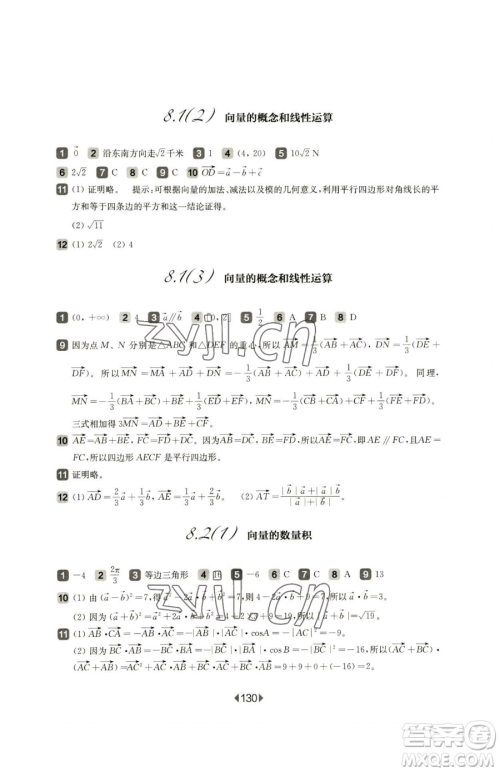 8.1(2) 向量的概念和线性运算
1 $\vec{0}$ 2 沿东南方向走$\sqrt{2}$千米 3 1 4 (4, 20) 5 10$\sqrt{2}$ N
6 2$\sqrt{2}$ 7 C 8 C 9 C 10 $\overrightarrow{OD}=\vec{a}-\vec{b}+\vec{c}$
11 (1) 证明略. 提示:可根据向量的加法、减法以及模的几何意义,利用平行四边形对角线长的平
方和等于四条边的平方和这一结论证得.
(2) $\sqrt{11}$
12 (1) 2$\sqrt{2}$ (2) 4
8.1(3) 向量的概念和线性运算
1 (0, +∞) 2 4 3 $\vec{a}∥\vec{b}$ 4 2] 5 $\frac{1}{2}$ 6 A 7 B 8 D
9 因为点 M、N 分别是△ABC 和△DEF 的重心,所以 $\overrightarrow{AM}=\frac{1}{3}(\overrightarrow{AB}+\overrightarrow{AC})$, $\overrightarrow{DN}=\frac{1}{3}(\overrightarrow{DE}+$
$\overrightarrow{DF})$. 所以 $\overrightarrow{MN}=\overrightarrow{MA}+\overrightarrow{AD}+\overrightarrow{DN}=-\frac{1}{3}(\overrightarrow{AB}+\overrightarrow{AC})+\overrightarrow{AD}+\frac{1}{3}(\overrightarrow{DE}+\overrightarrow{DF})$. 同理,
$\overrightarrow{MN}=-\frac{1}{3}(\overrightarrow{BA}+\overrightarrow{BC})+\overrightarrow{BE}+\frac{1}{3}(\overrightarrow{ED}+\overrightarrow{EF})$, $\overrightarrow{MN}=-\frac{1}{3}(\overrightarrow{CA}+\overrightarrow{CB})+\overrightarrow{CF}+\frac{1}{3}(\overrightarrow{FD}+\overrightarrow{FE})$.
三式相加得 3$\overrightarrow{MN}=\overrightarrow{AD}+\overrightarrow{BE}+\overrightarrow{CF}$.
10 $\overrightarrow{AE}=\overrightarrow{AB}+\overrightarrow{BE}$, $\overrightarrow{FC}=\overrightarrow{FD}+\overrightarrow{DC}$. 因为 $\overrightarrow{AB}=\overrightarrow{DC}$, $\overrightarrow{FD}=\overrightarrow{BE}$,所以 $\overrightarrow{AE}=\overrightarrow{FC}$,即 AE∥FC 且 AE=
FC,所以四边形 AECF 是平行四边形.
11 证明略.
12 (1) $\overrightarrow{AD}=\frac{2}{3}\vec{a}+\frac{1}{3}\vec{b}$, $\overrightarrow{AE}=\frac{1}{3}\vec{a}+\frac{2}{3}\vec{b}$. (2) $\overrightarrow{AT}=\frac{|\vec{b}|\vec{a}+|\vec{a}|\vec{b}}{|\vec{a}|+|\vec{b}|}$
8.2(1) 向量的数量积
1 -4 2 $\frac{2\pi}{3}$ 3 等边三角形 4 16 5 -6 6 C 7 C 8 A 9 13
10 (1) 由 $(\vec{a}-\vec{b})^2=7$,得 $\vec{a}^2-2\vec{a}·\vec{b}+\vec{b}^2=7$,则 4-2$\vec{a}·\vec{b}$+9=7,所以 $\vec{a}·\vec{b}=3$.
(2) 因为 $(\vec{a}+\vec{b})^2=\vec{a}^2+2\vec{a}·\vec{b}+\vec{b}^2=4+2×3+9=19$,所以 $|\vec{a}+\vec{b}|=\sqrt{19}$.
11 (1) $\overrightarrow{AB}·\overrightarrow{CA}=-\overrightarrow{AB}·\overrightarrow{AC}=-|\overrightarrow{AB}|·|\overrightarrow{AC}|·\cos A=-9$.
(2) 因为 $\overrightarrow{BC}·\overrightarrow{AB}=-\overrightarrow{BC}·\overrightarrow{BA}=-|\overrightarrow{BC}|·|\overrightarrow{BA}|·\cos B=-16$,所以 $\overrightarrow{AC}·\overrightarrow{AB}+\overrightarrow{BC}·\overrightarrow{AB}=9+9+0+(-16)=2$.
130
zyjl.cn
zyjl.cn